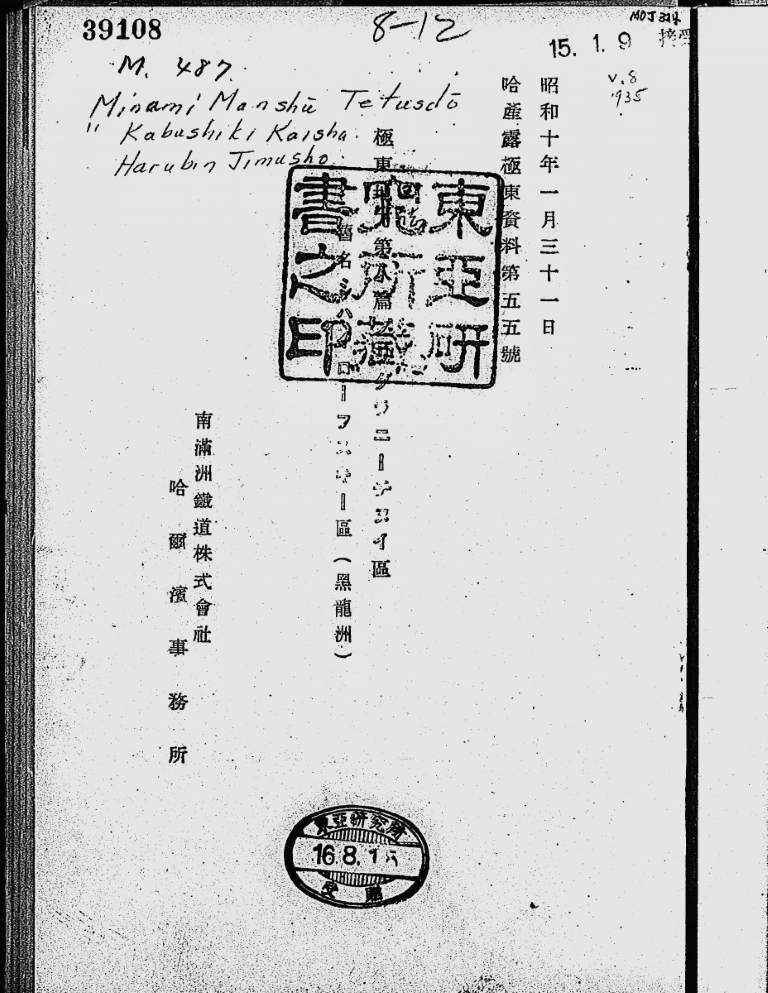 39108
8-12
MOJ
15. 1. 9
M. 487.
v.8
1935
Minami Manshū Tetusdō
" Kabushiki Kaisha.
Harubin Jimusho
昭和十年一月三十一日
哈產露極東資料第五五號
極東 第八篇 クリニーチヌイ區
舊名 ローフスキー區（黑龍洲）
南滿洲鐵道株式會社
哈爾濱事務所
東亞研
究所藏
書之印
東亞研究所
16.8.1
受